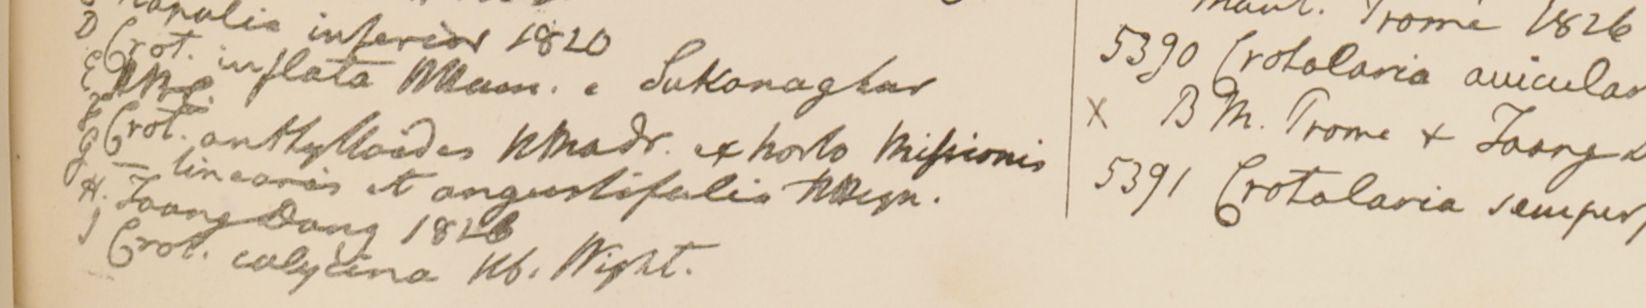 D Napalia inferior 1820
E Crot. inflata Ham. e Sukanaghur
F
G Crot. anthylloides HMadr. ex horto Missionis
— linearis et angustifolia Heyn.
H. Taong Dong 1826
J Crot. calycina Hb. Wight.
Mont. Trome 1826
5390 Crotalaria avicular
X B M. Trome & Taong D
5391 Crotalaria semper